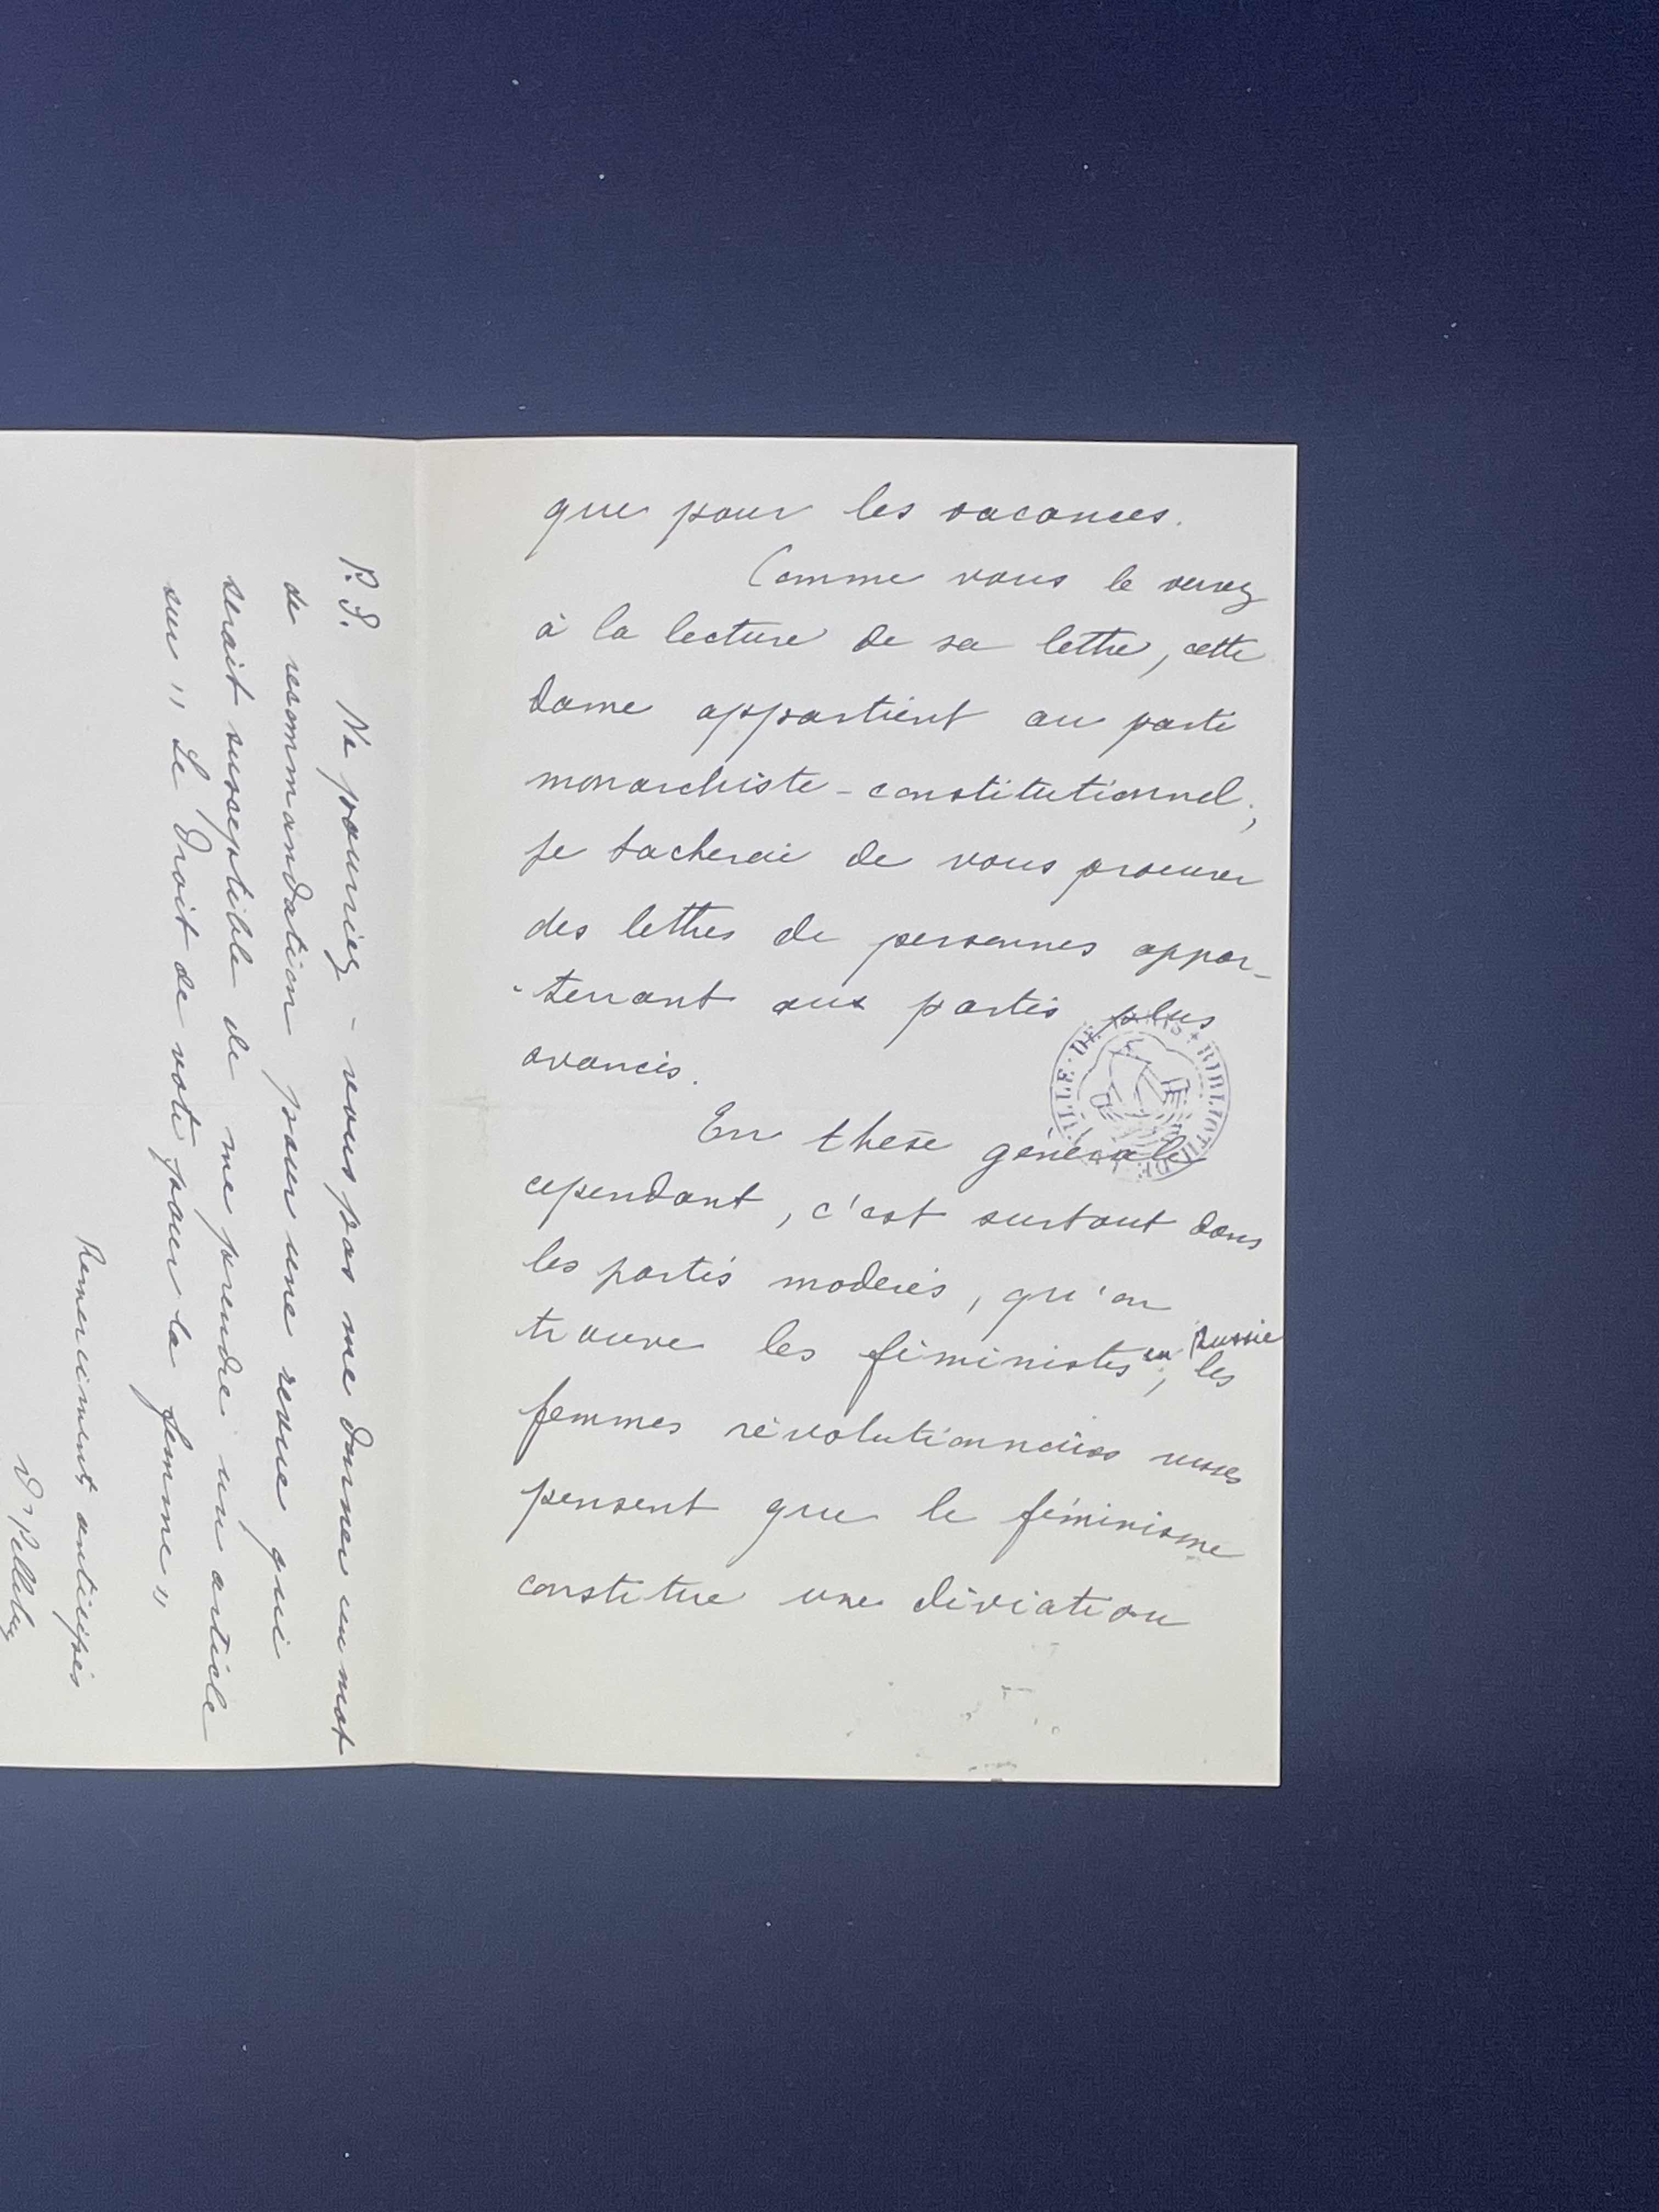 que pour les vacances.
Comme vous le verrez
à la lecture de sa lettre, cette
dame appartient au parti
monarchiste-constitutionnel;
je tacherai de vous procurer
des lettres de personnes appar-
tenant aux partis plus
avancés.
En thèse générale
cependant, c'est surtout dans
les partis modérés, qu'on
trouve les féministes en Russie; les
femmes révolutionnaires russes
pensent que le féminisme
constitue une déviation
P.S. Ne pourriez-vous pas me donner un mot
de recommandation pour une revue qui
serait susceptible de me prendre un article
sur "Le Droit de vote pour la femme"
Remerciments anticipés
VILLE DE PARIS * BIBLIOTH